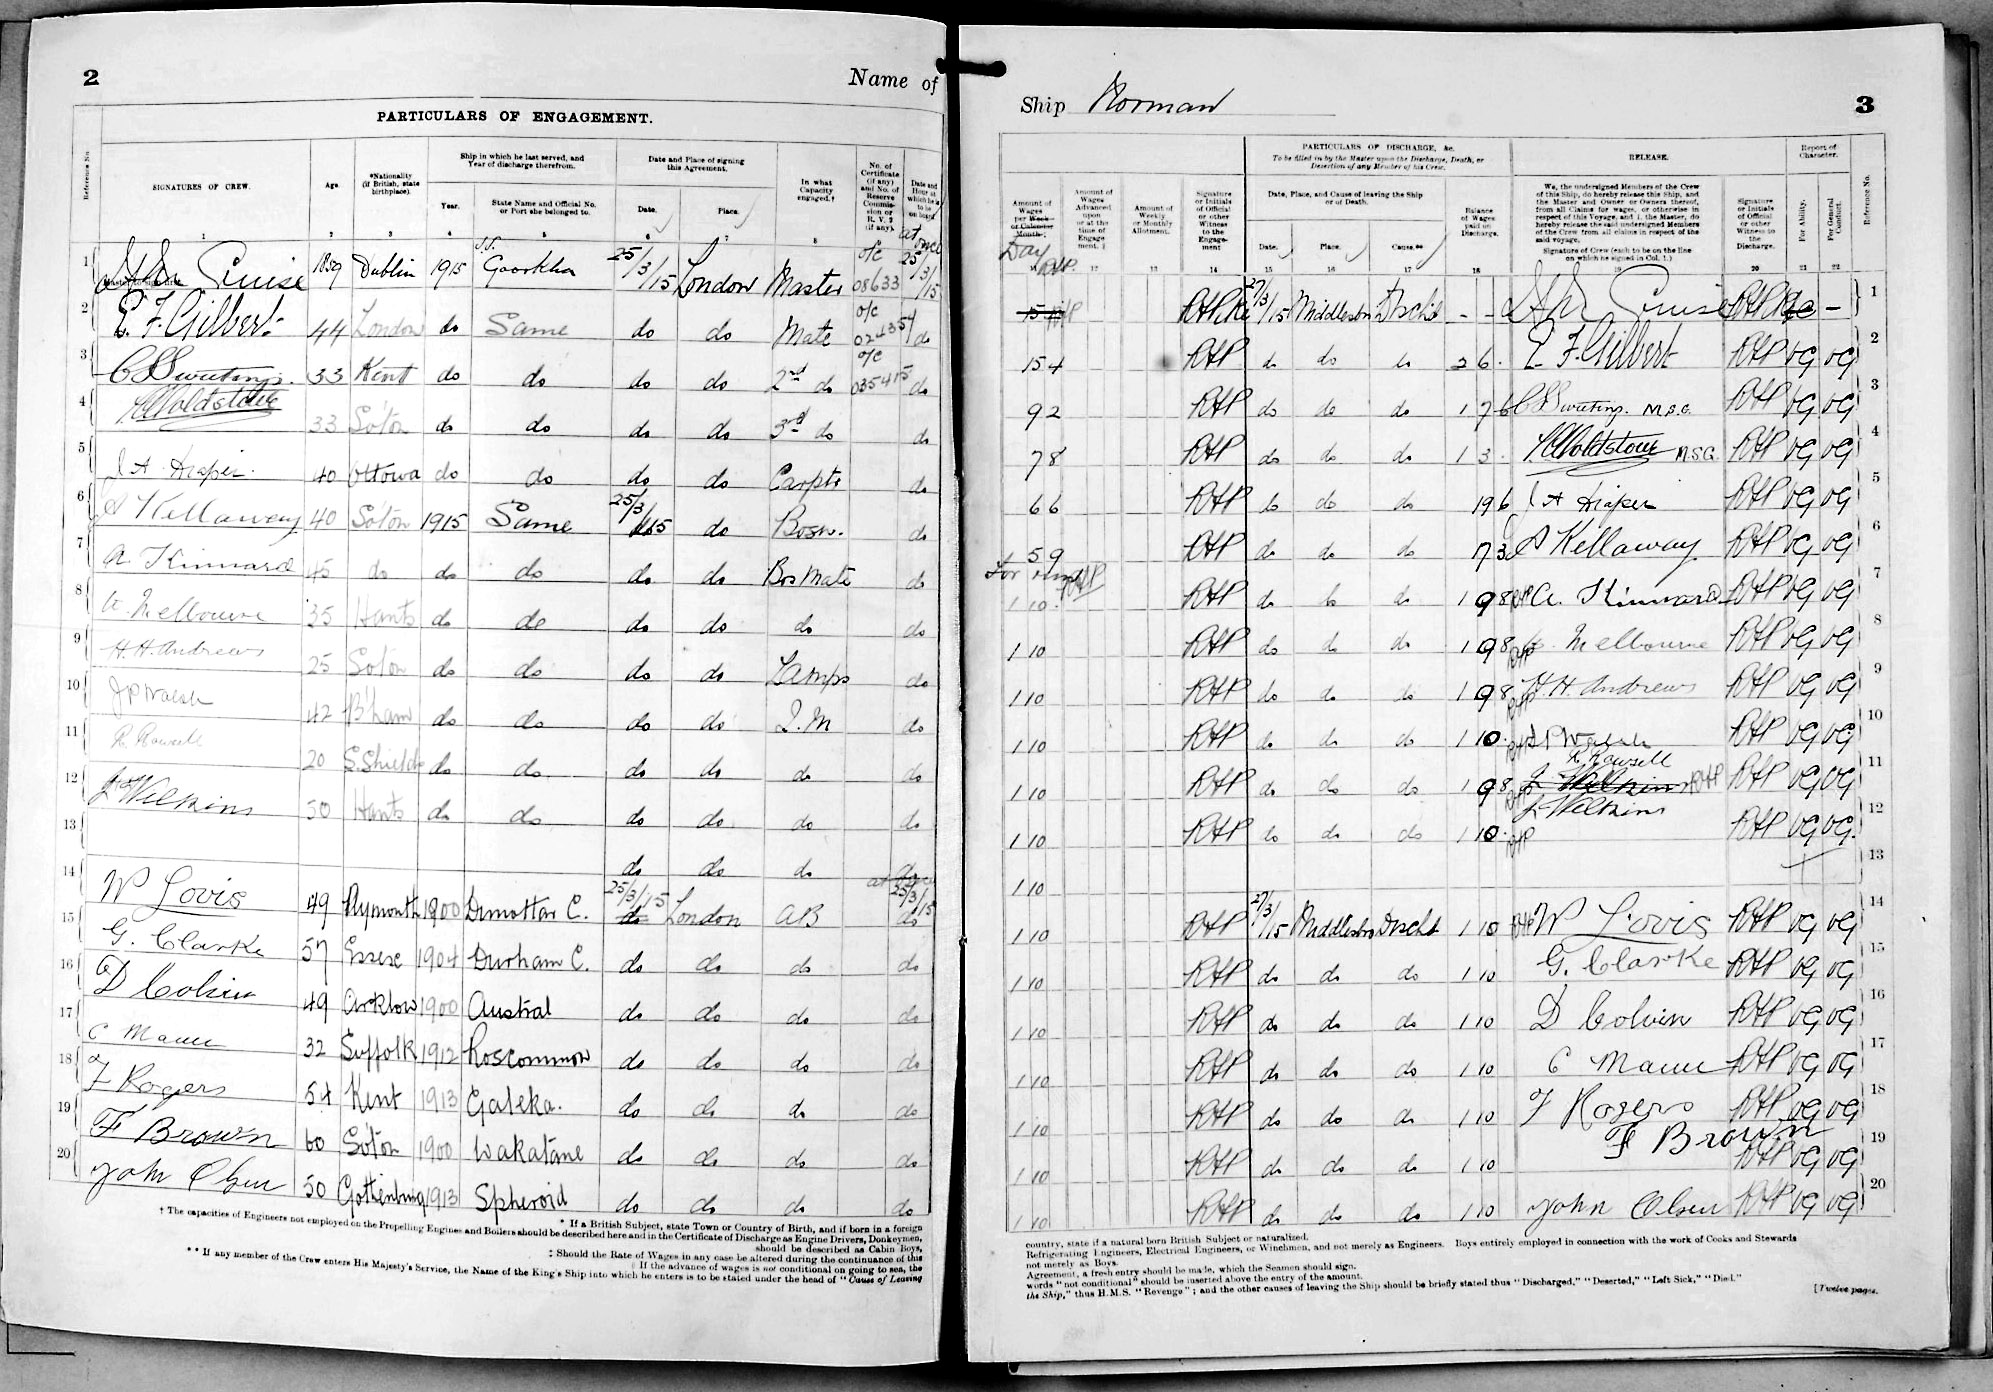 2
Name of
PARTICULARS OF ENGAGEMENT.
Reference No.
SIGNATURES OF CREW.
Age.
*Nationality (if British, state birthplace).
Ship in which he last served, and Year of discharge therefrom.
Year.
State Name and Official No. or Port she belonged to.
Date and Place of signing this Agreement.
Date.
Place.
In what Capacity engaged.†
No. of Certificate (if any) and No. of Reserve Commission or R. V. 2 (if any).
1 2 3 4 5 6 7 8
at once
1 Cruise 1859 Dublin 1915 S.S. Goorkha 25/3/15 London Master o/c 08633 25/3/15
Master to sign first.
2 E. F. Gilbert 44 London do Same do do Mate o/c 024354 do
3 33 Kent do do do do 2nd do o/c 035415 do
4 33 Soton do do do do 3rd do do
5 J A Draper. 40 Ottowa do do do do Carptr do
6 Kellaway 40 Soton 1915 Same 25/3/15 do Bosn. do
7 A. Kinnard 45 do do do do do Bos Mate do
8 Melbourne 35 Hants do do do do do do
9 H. H. Andrews 25 Soton do do do do Lamps do
10 J P Walsh 42 B'ham do do do do do
11 R. Rowsell 20 S. Shields do do do do do do
12 J Wilkins 50 Hants do do do do do do
13 do do do do
14 W Lovis 49 Plymouth 1900 Dunottar C. 25/3/15 do London AB 25/3/15 do
15 G. Clarke 57 Essex 1904 Durham C. do do do do
16 D Colvin 49 Arklow 1900 Austral do do do do
17 C Mann 32 Suffolk 1912 Roscommon do do do do
18 F Rogers 54 Kent 1913 Galeka. do do do do
19 F Brown 60 Soton 1900 Wakatane do do do do
20 John Olsen 50 Gothenburg 1913 Spheroid do do do do
† The capacities of Engineers not employed on the Propelling Engines and Boilers should be described here and in the Certificate of Discharge as Engine Drivers, Donkeymen,
* If a British Subject, state Town or Country of Birth, and if born in a foreign
should be described as Cabin Boys,
‡ Should the Rate of Wages in any case be altered during the continuance of this
If the advance of wages is not conditional on going to sea, the
** If any member of the Crew enters His Majesty's Service, the Name of the King's Ship into which he enters is to be stated under the head of "Cause of Leaving
Ship Norman
3
PARTICULARS OF DISCHARGE, &c.
To be filled in by the Master upon the Discharge, Death, or Desertion of any Member of his Crew.
RELEASE.
Report of Character.
Amount of Wages per Week or Calendar Month.
Day
Amount of Wages Advanced upon or at the time of Engagement.
Amount of Weekly or Monthly Allotment.
Signature or Initials of Official or other Witness to the Engagement
Date, Place, and Cause of leaving the Ship or of Death.
Date.
Place.
Cause.**
Balance of Wages paid on Discharge.
We, the undersigned Members of the Crew of this Ship, do hereby release this Ship, and the Master and Owner or Owners thereof, from all Claims for wages, or otherwise in respect of this Voyage, and I, the Master, do hereby release the said undersigned Members of the Crew from all claims in respect of the said voyage.
Signature of Crew (each to be on the line on which he signed in Col. 1.)
Signature or Initials of Official or other Witness to the Discharge.
For Ability.
For General Conduct.
Reference No.
12 13 14 15 16 17 18 19 20 21 22
27/3/15 Middlesbro Dischd - - Cruise - 1
15 4 RHP do do do 2 6. E F. Gilbert RHP VG VG 2
9 2 RHP do do do 1 7 6 M.S.G. RHP VG VG 3
7 8 RHP do do do 1 3. M.S.G. RHP VG VG 4
6 6 RHP do do do 19 6 J A Draper RHP VG VG 5
5 9 RHP do do do 17 3 Kellaway RHP VG VG 6
1 10. RHP do do do 1 9 8 A. Kinnard RHP VG VG 7
1 10 RHP do do do 1 9 8 Melbourne RHP VG VG 8
1 10 RHP do do do 1 9 8 H. H. Andrews RHP VG VG 9
1 10 RHP do do do 1 10. J P Walsh RHP VG VG 10
R. Rowsell
1 10 RHP do do do 1 9 8 J Wilkins RHP RHP VG VG 11
1 10 RHP do do do 1 10. J Wilkins RHP VG VG. 12
1 10 13
1 10 RHP 27/3/15 Middlesbro Dischd 1 10 W Lovis RHP VG VG 14
1 10 RHP do do do 1 10 G. Clarke RHP VG VG 15
1 10 RHP do do do 1 10 D Colvin RHP VG VG 16
1 10 RHP do do do 1 10 C Mann RHP VG VG 17
1 10 RHP do do do 1 10 F Rogers RHP VG VG 18
1 10 RHP do do do 1 10 F Brown RHP VG VG 19
1 10 RHP do do do 1 10 John Olsen RHP VG VG 20
country, state if a natural born British Subject or naturalized.
Refrigerating Engineers, Electrical Engineers, or Winchmen, and not merely as Engineers. Boys entirely employed in connection with the work of Cooks and Stewards
not merely as Boys.
Agreement, a fresh entry should be made, which the Seamen should sign.
words "not conditional" should be inserted above the entry of the amount.
the Ship," thus H.M.S. "Revenge"; and the other causes of leaving the Ship should be briefly stated thus "Discharged," "Deserted," "Left Sick," "Died."
[Twelve pages.